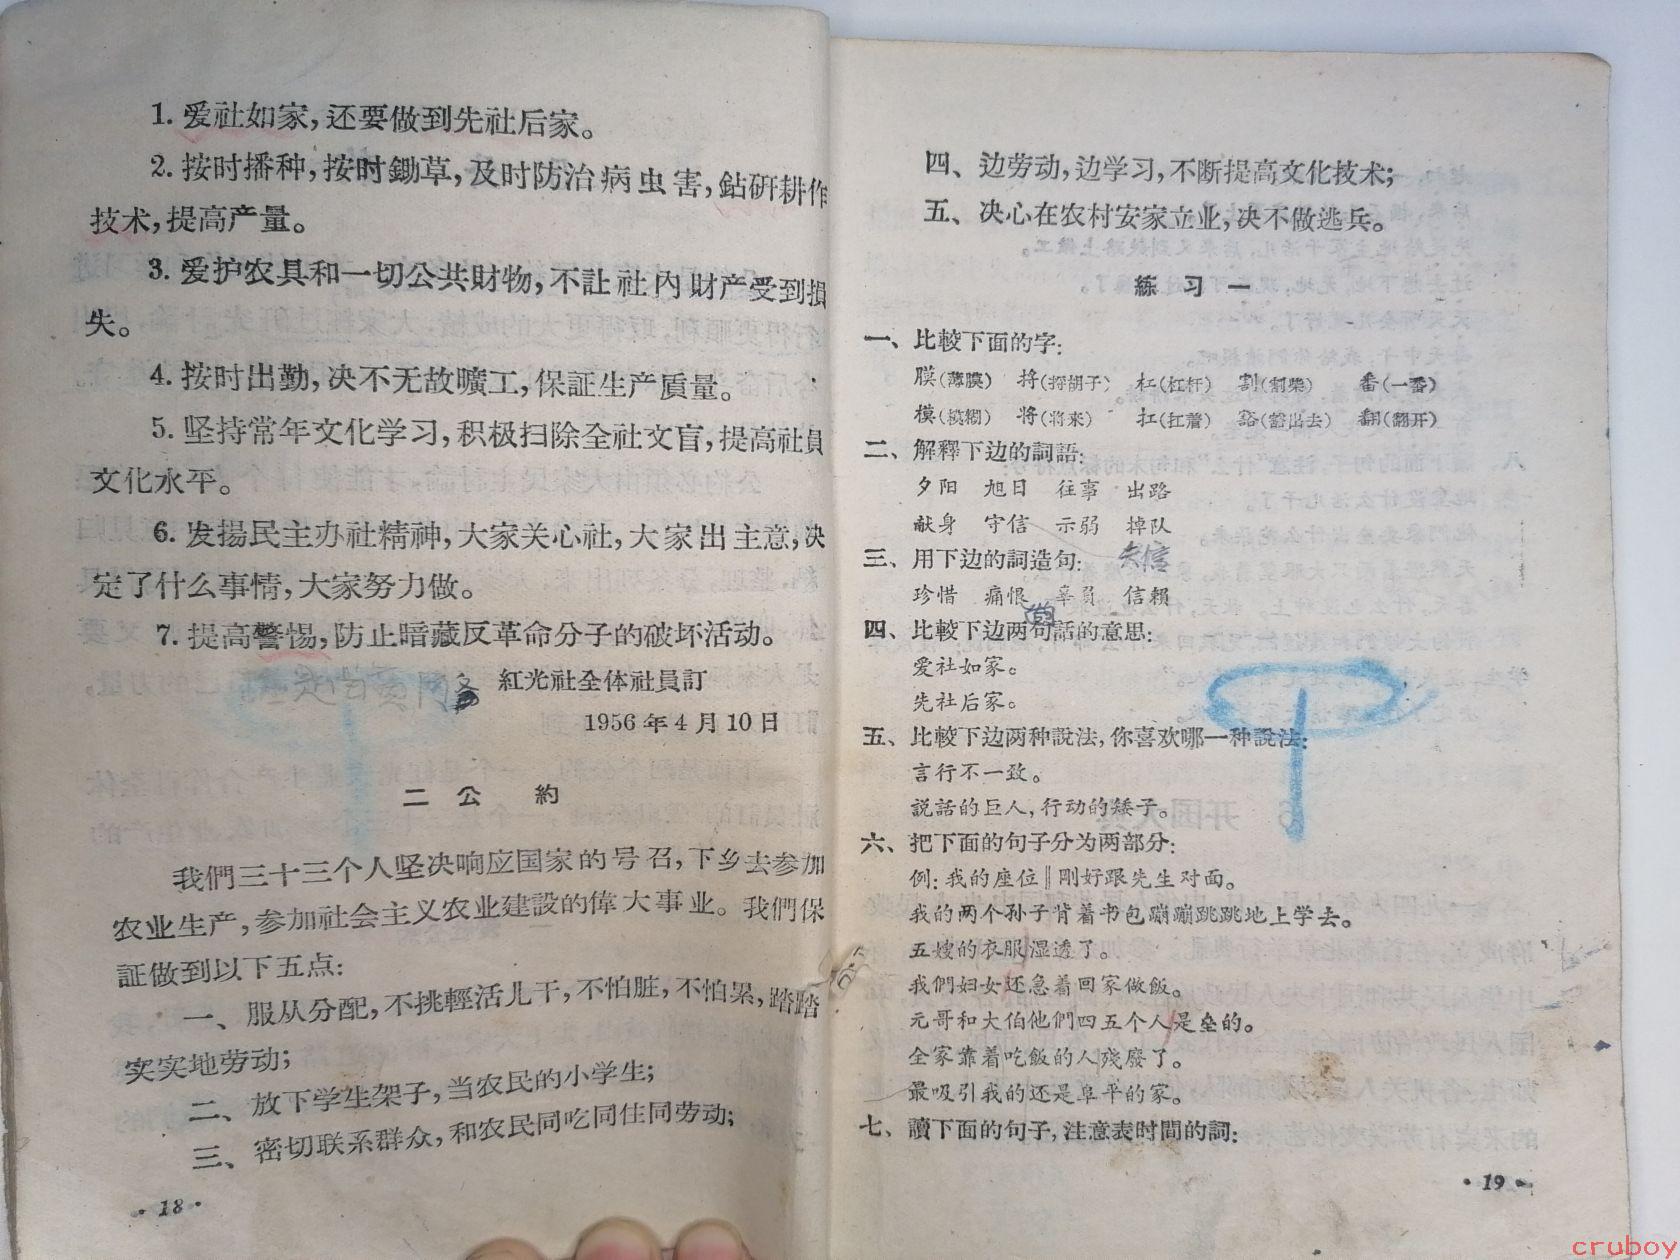 1. 爱社如家，还要做到先社后家。
2. 按时播种，按时鋤草，及时防治病虫害，鉆研耕作
技术，提高产量。
3. 爱护农具和一切公共財物，不註社內財产受到損
失。
4. 按时出勤，决不无故曠工，保証生产质量。
5. 坚持常年文化学习，积极扫除全社文盲，提高社員
文化水平。
6. 发揚民主办社精神，大家关心社，大家出主意，决
定了什么事情，大家努力做。
7. 提高警惕，防止暗藏反革命分子的破坏活动。
紅光社全体社員訂
1956年4月10日
二 公 約
我們三十三个人坚决响应国家的号召，下乡去参加
农业生产，参加社会主义农业建設的偉大事业。我們保
証做到以下五点：
一、服从分配，不挑輕活儿干，不怕脏，不怕累，踏踏
实实地劳动；
二、放下学生架子，当农民的小学生；
三、密切联系群众，和农民同吃同住同劳动；
·18·
四、边劳动，边学习，不断提高文化技术；
五、决心在农村安家立业，决不做逃兵。
練 习 一
一、比較下面的字：
膜(薄膜) 捋(捋胡子) 杠(杠杆) 割(割柴) 番(一番)
模(模糊) 将(将来) 扛(扛着) 豁(豁出去) 翻(翻开)
二、解釋下边的詞語：
夕阳 旭日 往事 出路
献身 守信 示弱 掉队
三、用下边的詞造句： 失信
珍惜 痛恨 辜負 信賴
四、比較下边两句話的意思：
爱社如家。
先社后家。
五、比較下边两种說法，你喜欢哪一种說法：
言行不一致。
說話的巨人，行动的矮子。
六、把下面的句子分为两部分：
例：我的座位‖剛好跟先生对面。
我的两个孙子背着书包蹦蹦跳跳地上学去。
五嫂的衣服湿透了。
我們妇女还急着回家做飯。
元哥和大伯他們四五个人是垒的。
全家靠着吃飯的人殘廢了。
最吸引我的还是阜平的家。
七、讀下面的句子，注意表时間的詞：
·19·
cruboy